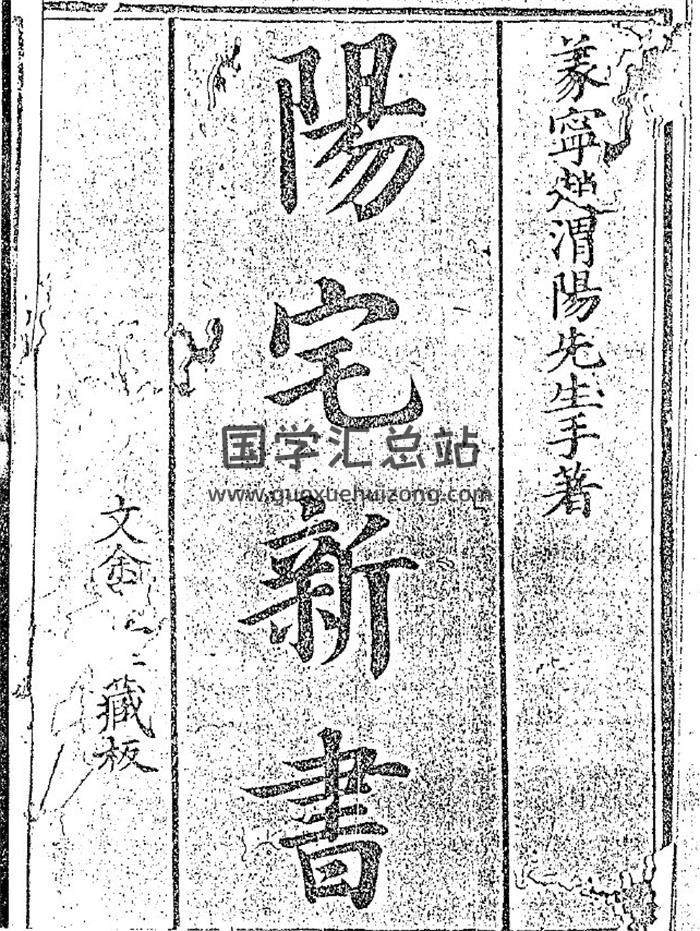 寧趙渭陽先生手著
陽宅新書
文藏板
国学汇总站
www.guoxuehuizong.com